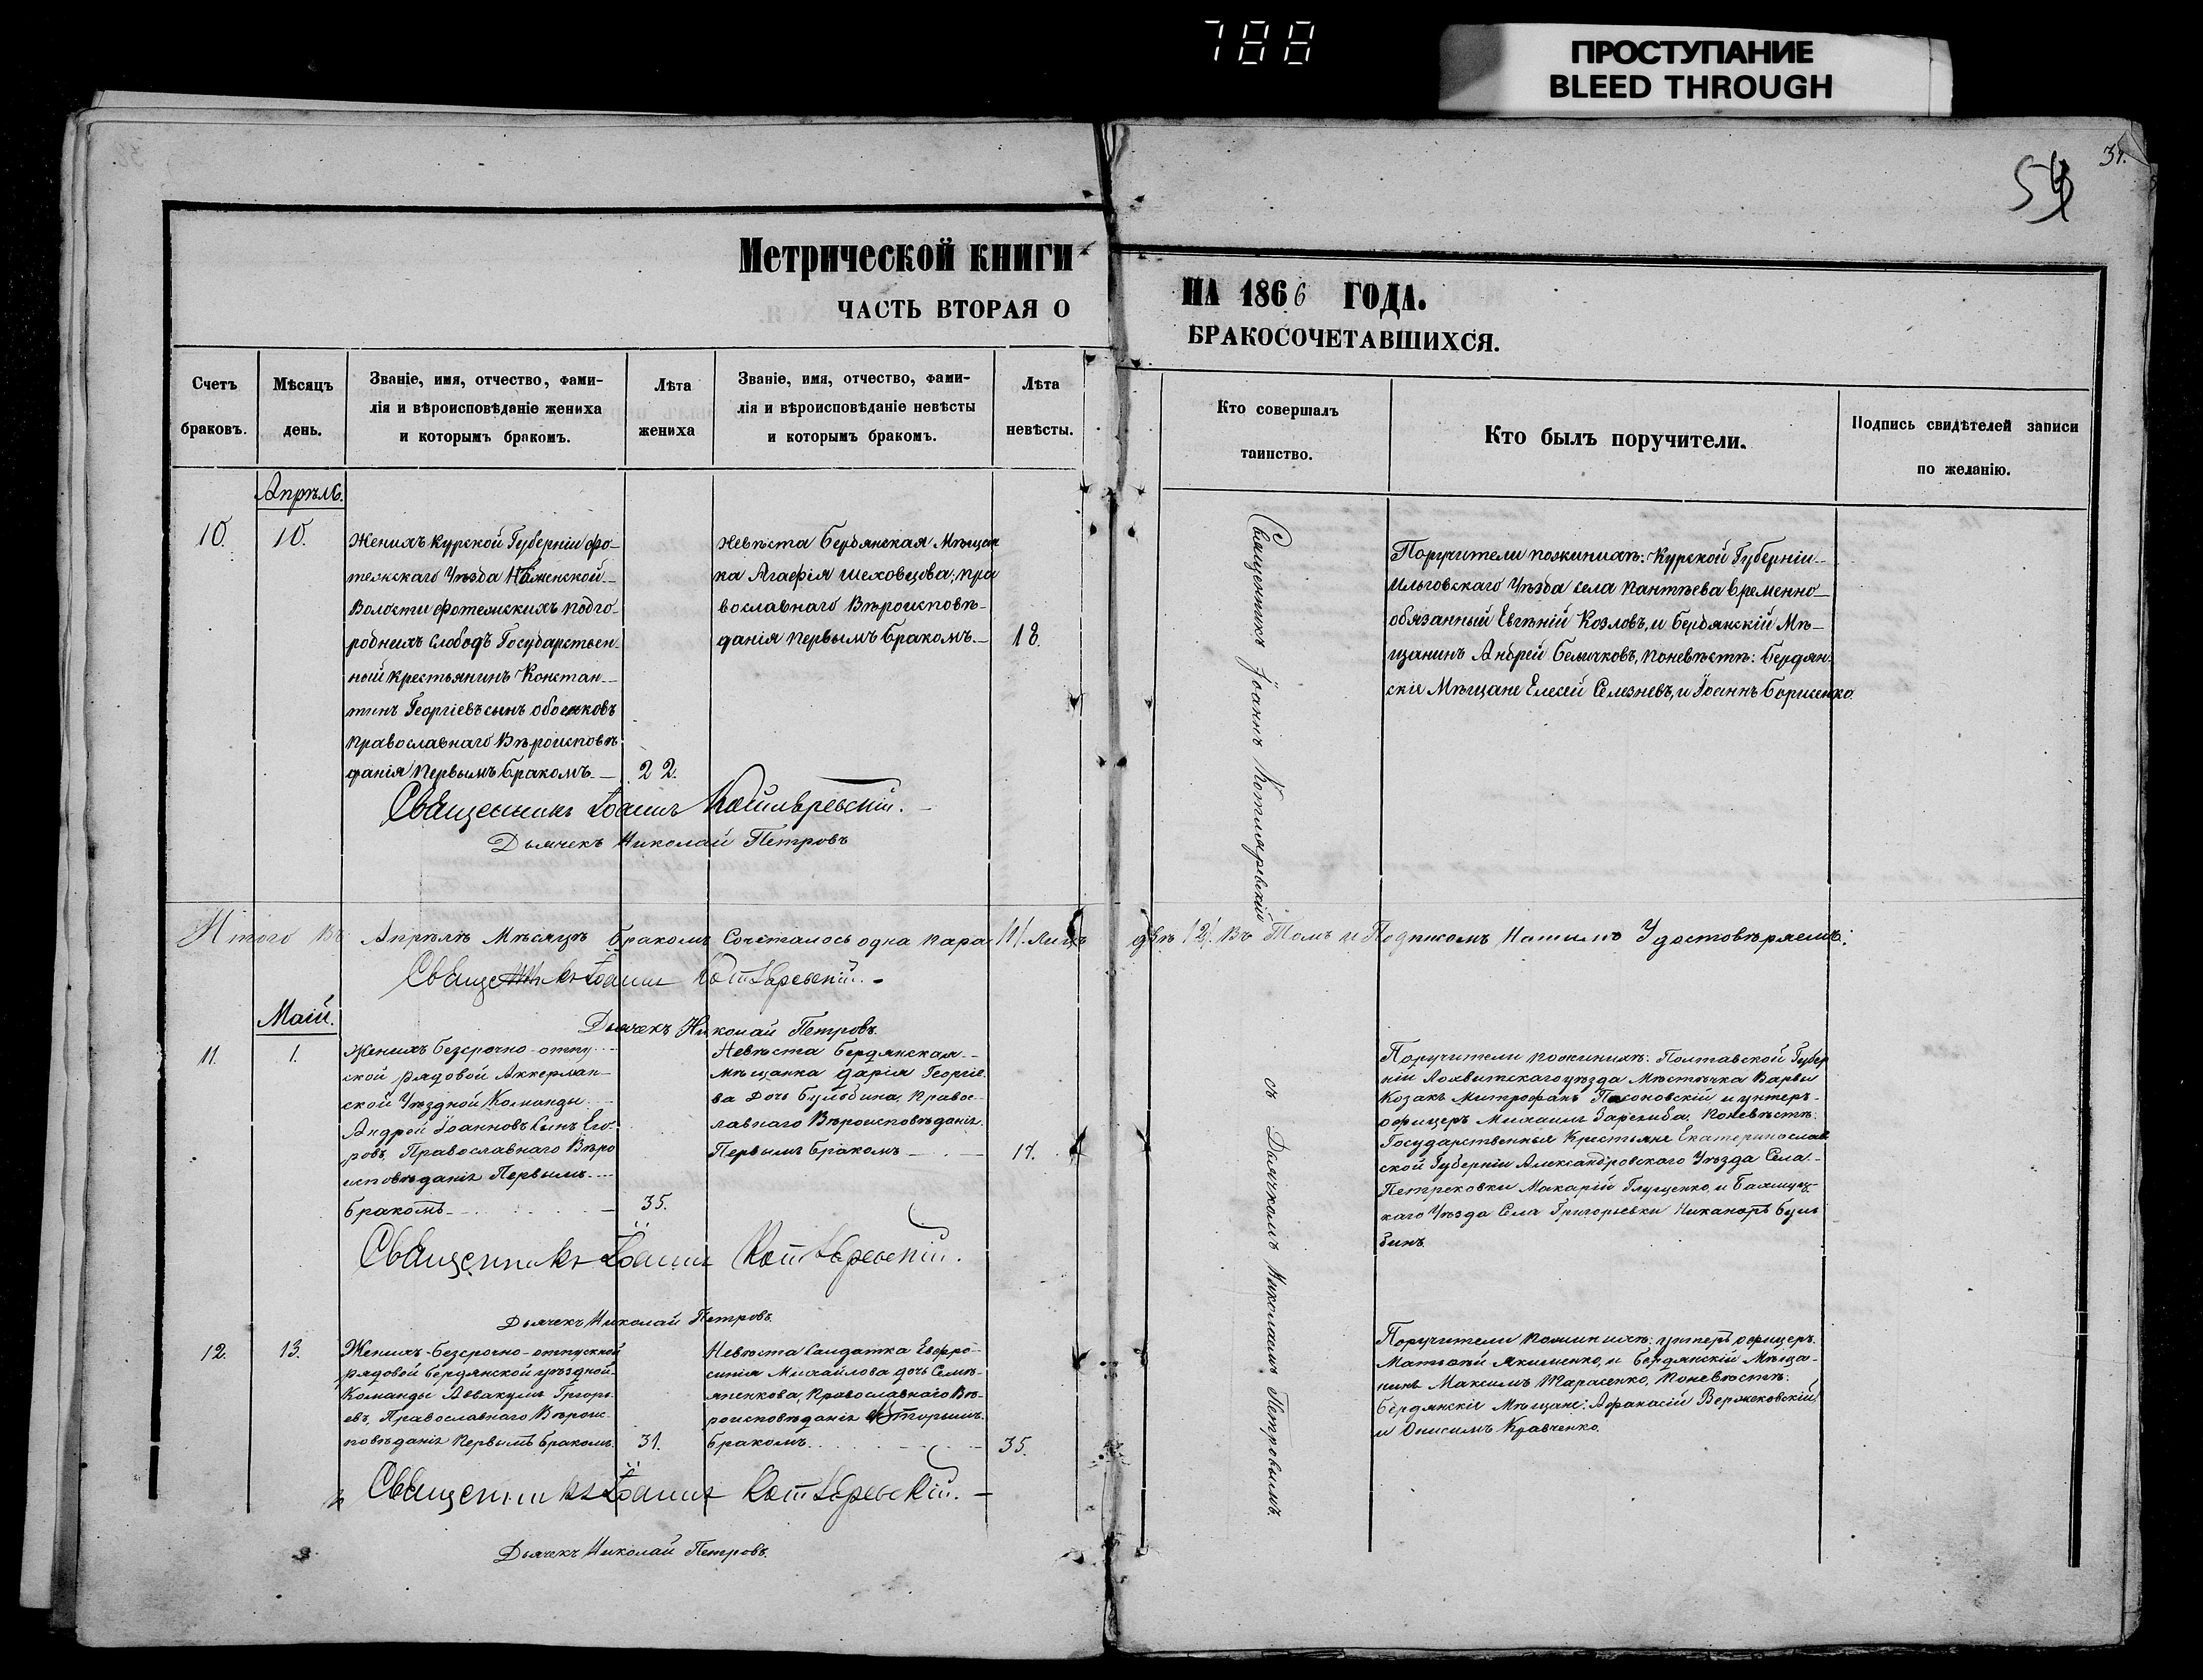 788
ПРОСТУПАНИЕ
BLEED THROUGH
34.
Метрической книги
ЧАСТЬ ВТОРАЯ О
НА 1866 ГОДА.
БРАКОСОЧЕТАВШИХСЯ.
Счетъ браковъ.
Мѣсяцъ день.
Званіе, имя, отчество, фами-
лія и вѣроисповѣданіе жениха
и которымъ бракомъ.
Лѣта жениха
Званіе, имя, отчество, фами-
лія и вѣроисповѣданіе невѣсты
и которымъ бракомъ.
Лѣта невѣсты.
Кто совершалъ
таинство.
Кто былъ поручители.
Подпись свидѣтелей записи
по желанію.
Апрѣль.
10.
10.
Женихъ Курской Губерніи фо-
тежскаго Уѣзда
Волости фотежскихъ подго-
роднихъ слободъ Государствен-
ный крестьянинъ Констан-
тинъ Георгіевъ сынъ
православнаго Вѣроисповѣ
данія Первымъ Бракомъ.
22.
Невѣста Бердянская Мѣщан
ка Агафія Шеховцова, пра
вославнаго Вѣроисповѣ-
данія Первымъ Бракомъ.
18.
Священникъ Іоаннъ Котляревскій
съ Дьячкомъ Николаемъ Петровымъ.
Поручители пожениху: Курской Губерніи
Ильговскаго Уѣзда села Пантѣева временно
обязанный Евгѣній Козловъ, и Бердянскій Мѣ-
щанинъ Андрей Беличковъ, поневѣстѣ: Бердян-
скіе Мѣщане Елесей Селезневъ, и Іоаннъ Борисенко.
Священникъ Іоаннъ Котляревскій.
Дьячекъ Николай Петровъ
Итого въ Апрѣлѣ Мѣсяцѣ Бракомъ Сочеталось одна пара /1/. Лицъ двѣ /2/. Въ Томъ и Подписомъ Нашимъ Удостовѣряемъ:
Священникъ Іоаннъ Котляревскій.
Дьячекъ Николай Петровъ.
Маій.
11.
1.
Женихъ безсрочно-отпу-
ской рядовой Аккерман-
ской Уѣздной Команды
Андрей Іоанновъ сынъ Его-
ровъ, Православнаго Вѣро
исповѣданія Первымъ
бракомъ
35.
Невѣста Бердянская
Мѣщанка Дарія Георгіе-
ва Дочь Бульбина, Правос-
лавнаго Вѣроисповѣданія
Первымъ бракомъ
17.
Поручители пожениху: Полтавской Губер
ніи Лохвитскаго уѣзда Мѣстечка Варвы
Козакъ Митрофанъ и унтеръ-
офицеръ Михаилъ Заремба, поневѣстѣ:
Государственные Крестьяне Екатеринослав
ской Губерніи Александровскаго Уѣзда Села
Петрековки Макарій Глущенко, и Бахмут-
каго Уѣзда Села Григорьевки Никаноръ Буль
бинъ.
Священникъ Іоаннъ Котляревскій.
Дьячекъ Николай Петровъ.
12.
13.
Женихъ-безсрочно-отпускной
рядовой бердянской уѣздной
Команды Аввакумъ Григорь
евъ, Православнаго Вѣроис-
повѣданія Первымъ бракомъ.
31.
Невѣста Салдатка Евфро-
синія Михайлова дочь Семѣ-
, Православнаго Вѣ-
роисповѣданія Вторымъ
бракомъ
35.
Поручители пожениху: унтеръ офицеръ
Матвѣй Якименко, и Бердянскій Мѣща-
нинъ Максимъ Тарасенко, поневѣстѣ:
Бердянскіе Мѣщане: Афанасій Вержековскій,
и Онисимъ Кравченко.
Священникъ Іоаннъ Котляревскій.
Дьячекъ Николай Петровъ.